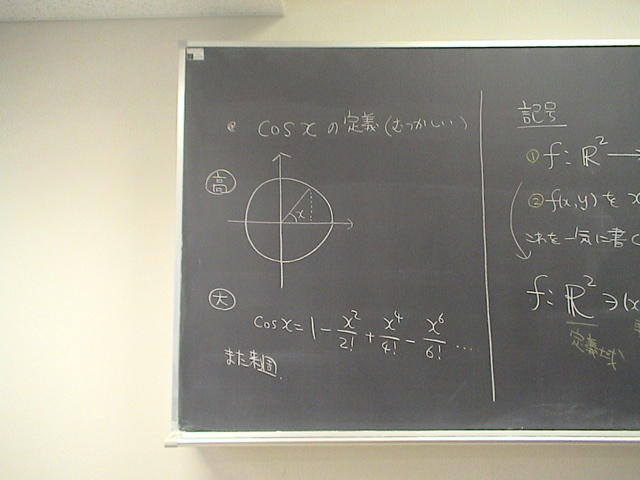 cos x の定義 (むつかしい)
高
x
大
cos x = 1 - x²/2! + x⁴/4! - x⁶/6! ....
また来週.
記号
① f: ℝ² →
② f(x,y) を x
これを一気に書く
f: ℝ² ∋ (x
定義域